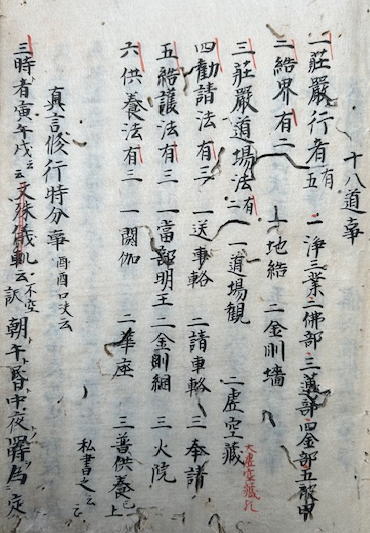 十八道事
一莊嚴行者有五 一淨三業二佛部三蓮部四金部五被甲
二結界有二 一地結 二金剛墻
三莊嚴道場法有二 一道場観 二虚空藏 大虚空藏
四勸請法有三 一送車輅 二請車輅 三奉請
五結護法有三 一當部明王 二金剛網 三火院
六供養法有三 一閼伽 二華座 三普供養已上
私書之云云
真言修行時分事 酉酉口决云
三時者寅午戌云云文殊儀軌云不空訳朝午昏中夜為定